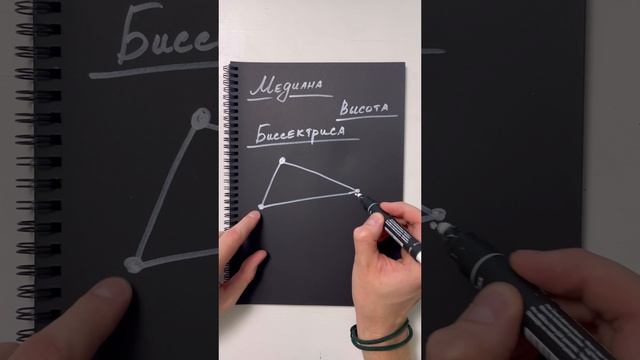 Медиана
Высота
Биссектриса